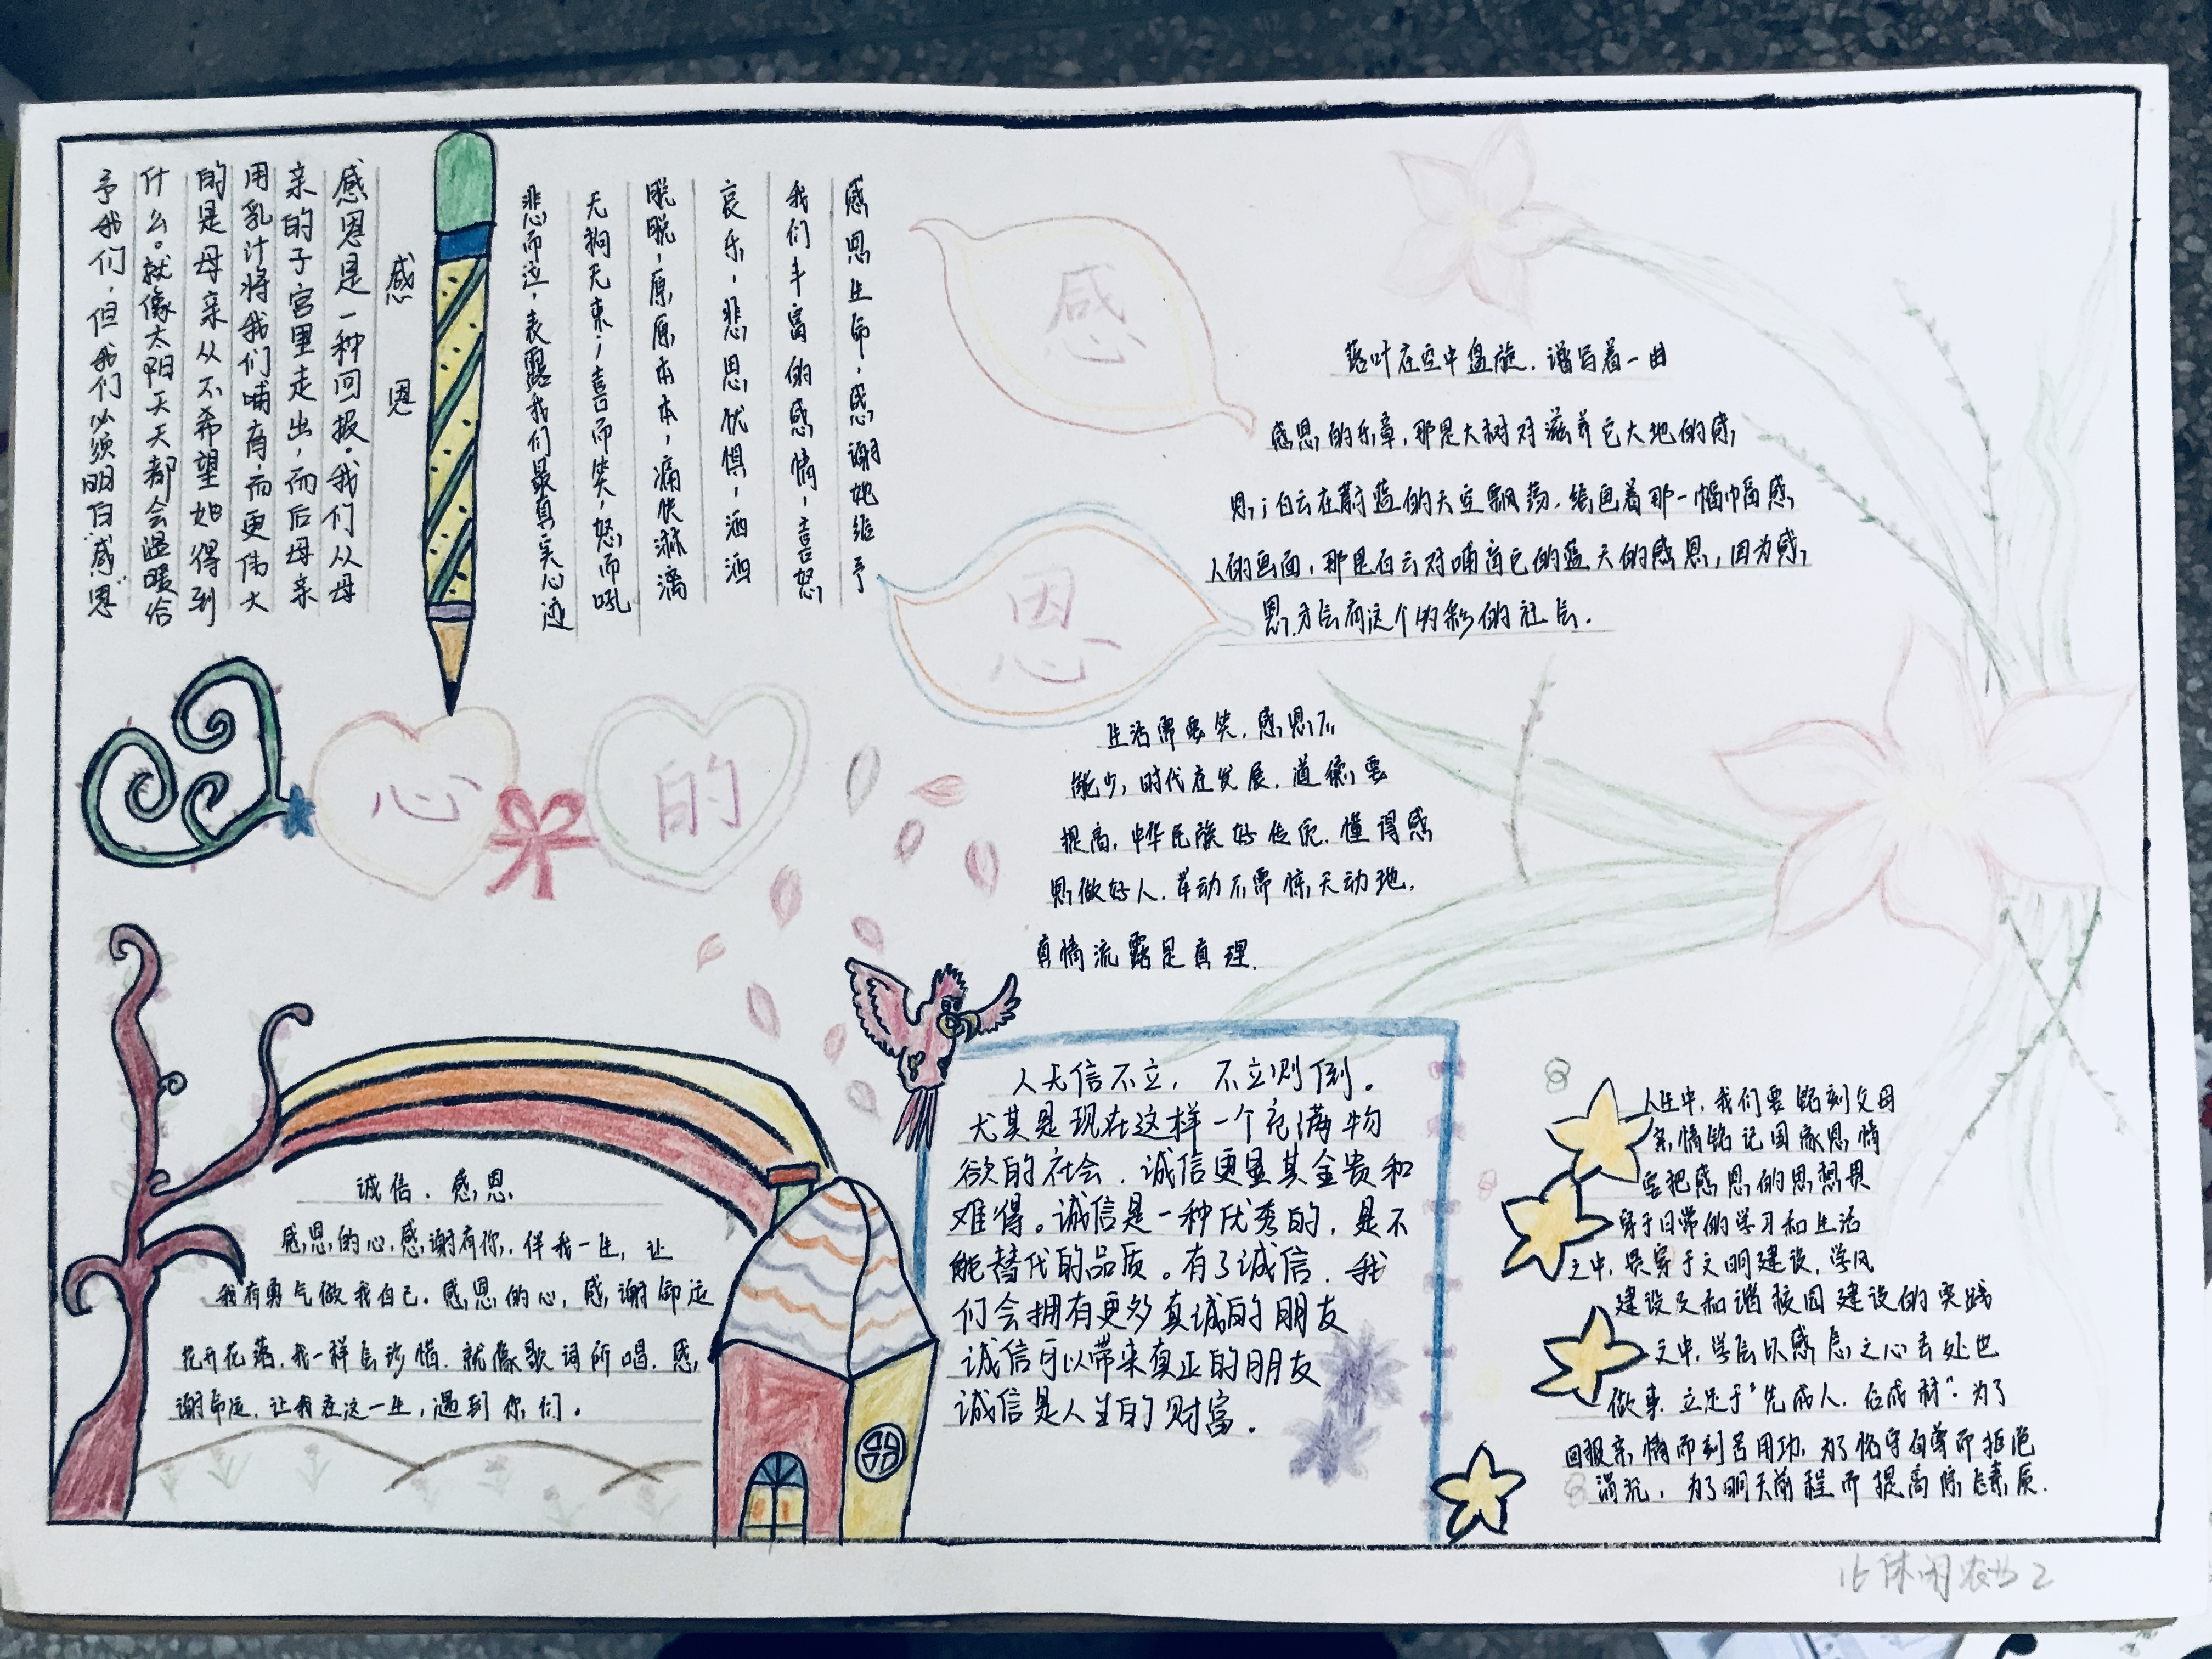 感恩
感恩是一种回报。我们从母
亲的子宫里走出，而后母亲
用乳汁将我们哺育，而更伟大
的是母亲从不希望她得到
什么。就像太阳天天都会温暖给
予我们，但我们必须明白"感恩"
感恩生命，感谢她给予
我们丰富的感情，喜怒
哀乐，悲思忧惧，洒洒
脱脱，原原本本，痛快淋漓
无拘无束；喜而笑，怒而吼
悲而泣，表露我们最真实心迹
感
恩
的
心
落叶在空中盘旋，谱写着一曲
感恩的乐章，那是大树对滋养它大地的感
恩；白云在蔚蓝的天空飘荡，绘画着那一幅幅感
人的画面，那是白云对哺育它的蓝天的感恩，因为感
恩，才会有这个的彩的社会。
生活需要笑，感恩不
能少，时代在发展，道德要
提高，中华民族好传统，懂得感
恩做好人，举动不需惊天动地，
真情流露是真理。
诚信、感恩
感恩的心，感谢有你，伴我一生，让
我有勇气做我自己。感恩的心，感谢命运
花开花落，我一样会珍惜，就像歌词所唱，感
谢命运，让我在这一生，遇到你们。
人无信不立，不立则倒。
尤其是现在这样一个充满物
欲的社会，诚信更显其金贵和
难得。诚信是一种优秀的，是不
能替代的品质。有了诚信，我
们会拥有更多真诚的朋友
诚信可以带来真正的朋友
诚信是人生的财富。
人生中，我们要铭刻父母
亲情铭记国家恩情
要把感恩的思想贯
穿于日常的学习和生活
之中，贯穿于文明建设，学风
建设及和谐校园建设的实践
之中，学会以感恩之心去处世
做事，立足于"先成人，后成材"。为了
回报亲情而刻苦用功，为了恪守自尊而拒绝
消沉，为了明天前程而提高综合素质．
16休闲农业2